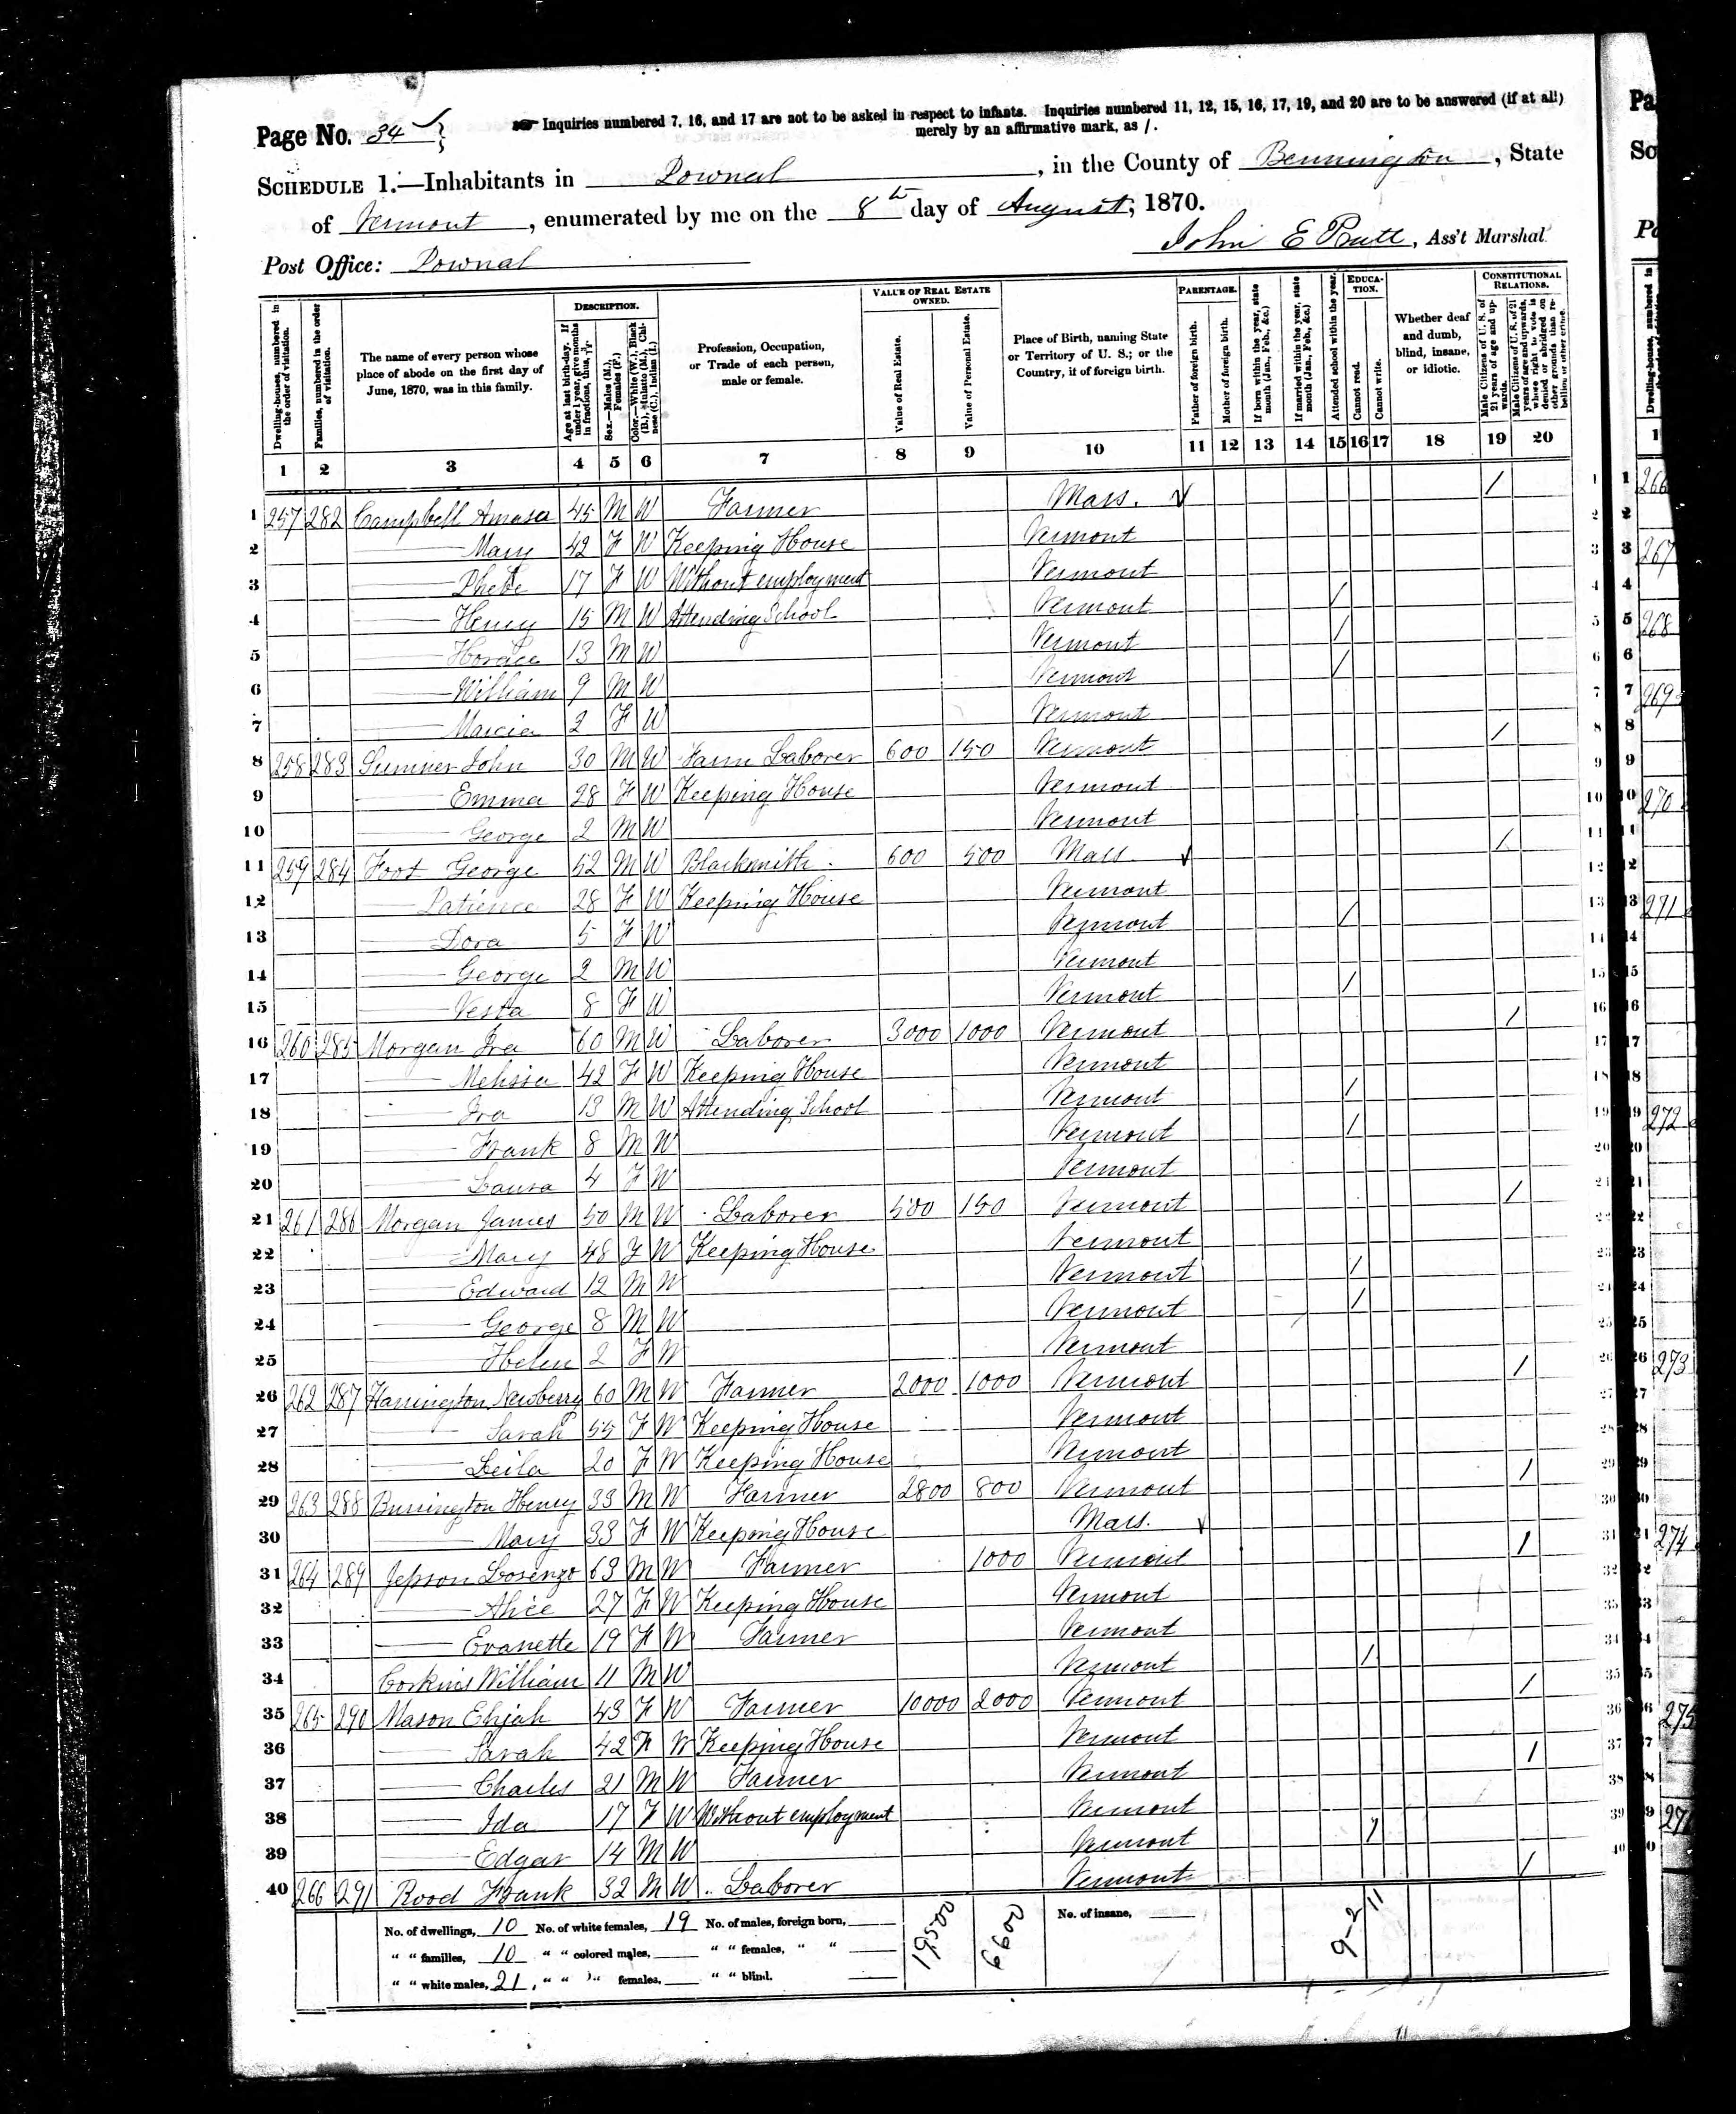 Page No. 34
Inquiries numbered 7, 16, and 17 are not to be asked in respect to infants. Inquiries numbered 11, 12, 15, 16, 17, 19, and 20 are to be answered (if at all)
merely by an affirmative mark, as /.
SCHEDULE 1.—Inhabitants in Pownal, in the County of Bennington, State
of Vermont, enumerated by me on the 8th day of August, 1870.
Post Office: Pownal
John E Pratt, Ass't Marshal.
Dwelling-houses, numbered in the order of visitation.
Families, numbered in the order of visitation.
The name of every person whose place of abode on the first day of June, 1870, was in this family.
DESCRIPTION.
Sex.—Males (M.), Females (F.)
Profession, Occupation, or Trade of each person, male or female.
VALUE OF REAL ESTATE OWNED.
Value of Real Estate.
Value of Personal Estate.
Place of Birth, naming State or Territory of U. S.; or the Country, if of foreign birth.
PARENTAGE.
Father of foreign birth.
Mother of foreign birth.
If born within the year, state month (Jan., Feb., &c.)
If married within the year, state month (Jan., Feb., &c.)
Attended school within the year.
EDUCATION.
Cannot read.
Cannot write.
Whether deaf and dumb, blind, insane, or idiotic.
CONSTITUTIONAL RELATIONS.
Male Citizens of U. S. of 21 years of age and upwards.
1 2 3 4 5 6 7 8 9 10 11 12 13 14 15 16 17 18 19 20
1 257 282 Campbell Amasa 45 M W Farmer Mass. /
2 Mary 42 F W Keeping House Vermont
3 Phebe 17 F W Without employment Vermont
4 Henry 15 M W Attending School Vermont /
5 Horace 13 M W Vermont /
6 William 9 M W Vermont /
7 Marcia 2 F W Vermont
8 258 283 Sumner John 30 M W Farm Laborer 600 150 Vermont /
9 Emma 28 F W Keeping House Vermont
10 George 2 M W Vermont
11 259 284 Foot George 52 M W Blacksmith 600 500 Mass /
12 Patience 28 F W Keeping House Vermont
13 Dora 5 F W Vermont /
14 George 2 M W Vermont
15 Vesta 8 F W Vermont /
16 260 285 Morgan Ira 60 M W Laborer 3000 1000 Vermont /
17 Melissa 42 F W Keeping House Vermont
18 Ira 13 M W Attending School Vermont /
19 Frank 8 M W Vermont /
20 Laura 4 F W Vermont
21 261 286 Morgan James 50 M W Laborer 500 150 Vermont /
22 Mary 48 F W Keeping House Vermont
23 Edward 12 M W Vermont /
24 George 8 M W Vermont /
25 Helen 2 F W Vermont
26 262 287 Harrington Newberry 60 M W Farmer 2000 1000 Vermont /
27 Sarah 55 F W Keeping House Vermont
28 Leila 20 F W Keeping House Vermont
29 263 288 Burrington Henry 33 M W Farmer 2800 800 Vermont /
30 Mary 33 F W Keeping House Mass.
31 264 289 Jepson Lorenzo 63 M W Farmer 1000 Vermont /
32 Alice 27 F W Keeping House Vermont
33 Evanette 19 F W Farmer Vermont
34 Corkins William 11 M W Vermont /
35 265 290 Mason Elijah 43 F W Farmer 10000 2000 Vermont /
36 Sarah 42 F W Keeping House Vermont
37 Charles 21 M W Farmer Vermont /
38 Ida 17 F W Without employment Vermont
39 Edgar 14 M W Vermont /
40 266 291 Rood Frank 32 M W Laborer Vermont /
No. of dwellings, 10 No. of white females, 19 No. of males, foreign born, 19500 6600 No. of insane,
" " families, 10 " " colored males, " " females, " "
" " white males, 21, " " " females, " " blind.